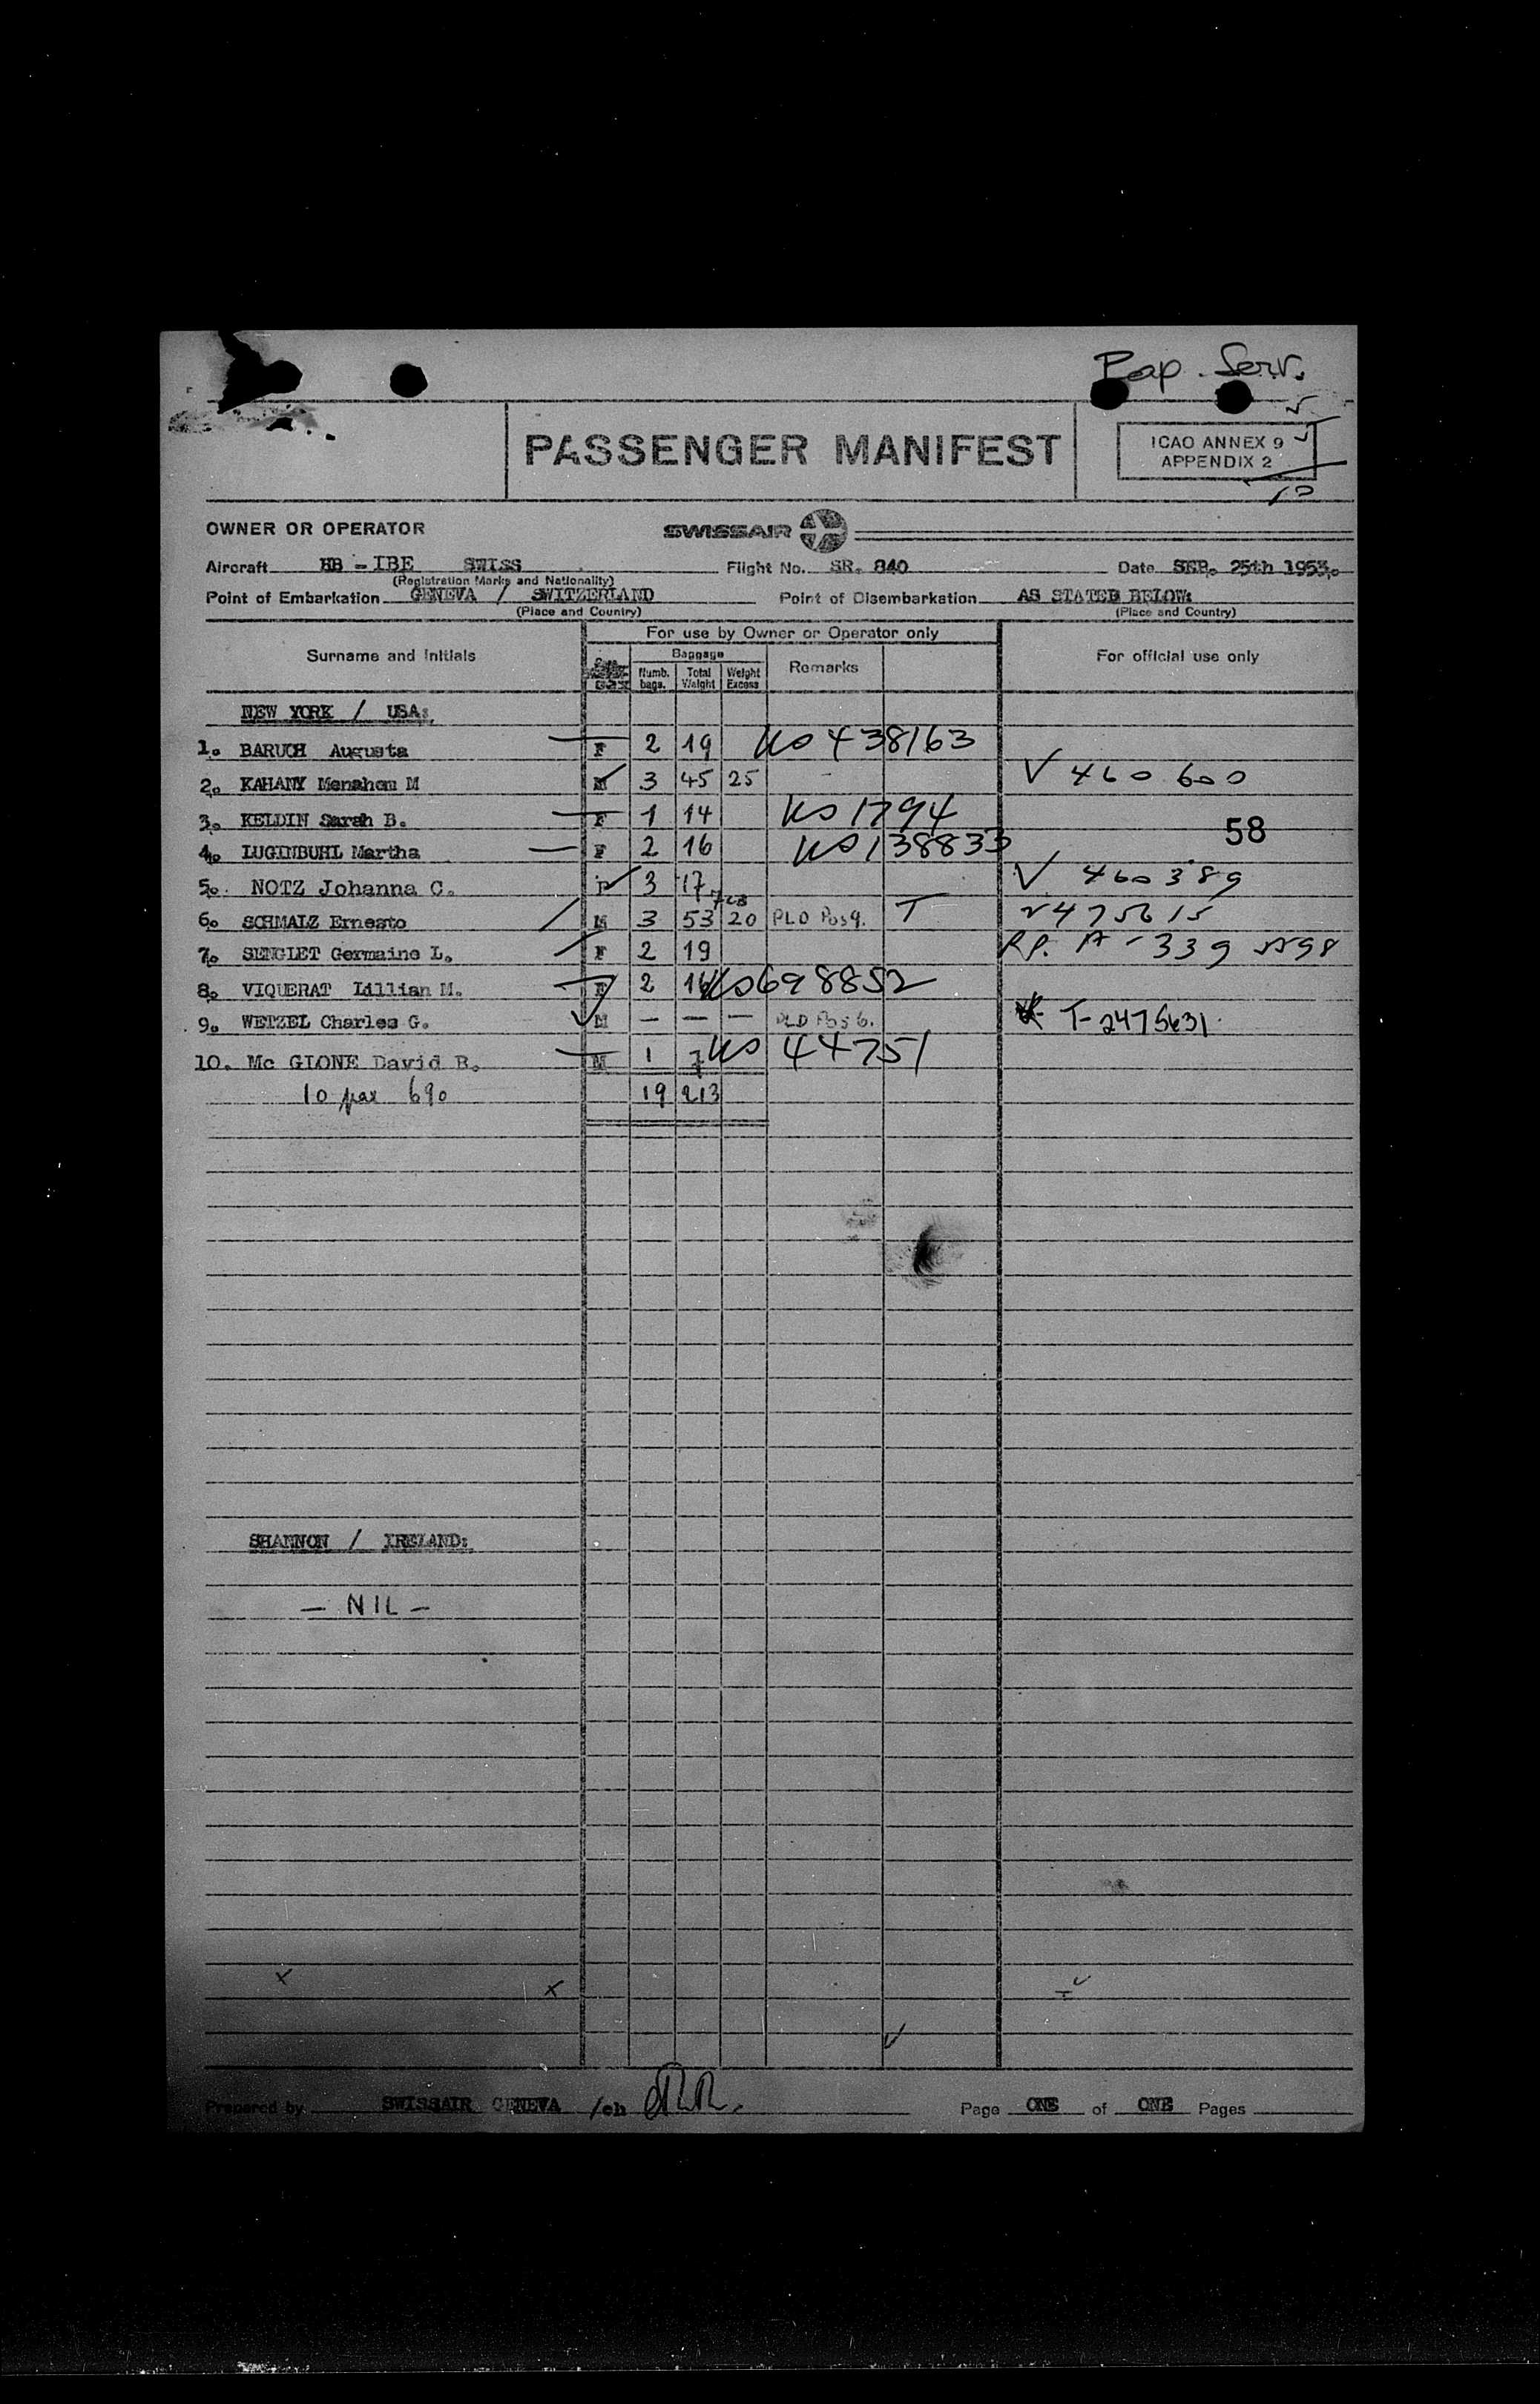 Pap. Serv.
PASSENGER MANIFEST
ICAO ANNEX 9
APPENDIX 2
10
OWNER OR OPERATOR SWISSAIR
Aircraft HB - IBE SWISS Flight No. SR. 840 Date SEP. 25th 1953.
(Registration Marks and Nationality)
Point of Embarkation GENEVA / SWITZERLAND Point of Disembarkation AS STATED BELOW:
(Place and Country) (Place and Country)
For use by Owner or Operator only
Surname and Initials Baggage Remarks For official use only
Numb. bags. Total Weight Weight Excess
NEW YORK / USA:
1. BARUCH Augusta F 2 19 US 438163
2. KAHANY Menahem M M 3 45 25 - V 460600
3. KELDIN Sarah B. F 1 14 US 1794
58
4. LUGINBUHL Martha F 2 16 US 138833
5. NOTZ Johanna C. F 3 17 V 460389
6. SCHMALZ Ernesto M 3 53 20 PLD Pos 9. T 2475615
7. SENGLET Germaine L. F 2 19 RP. A-339
8. VIQUERAT Lillian M. F 2 16 US 698852
9. WETZEL Charles G. M — — — PLD Pos 6. T-2475631
10. Mc GLONE David R. M 1 7 US 44751
10 pax 690 19 213
SHANNON / IRELAND:
- NIL -
Prepared by SWISSAIR GENEVA /ch Page ONE of ONE Pages